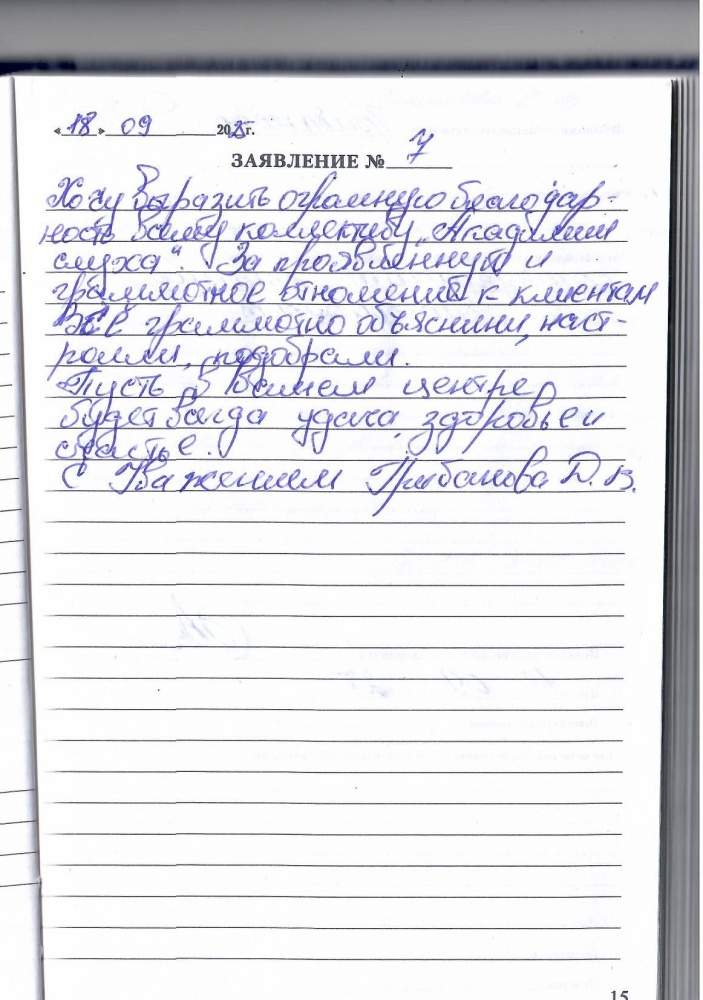 «18» 09 2025г.
ЗАЯВЛЕНИЕ № 7
Хочу выразить огромную благодар-
ность всему коллективу „Академии
слуха“ За проявленную и
граммотное отношений к клиентам
Всё граммотно объяснили, наст-
роили, подобрали.
Пусть в вашем центре
будет всегда удача, здоровье и
счастье.
С Уважением Грибанова Д.В.
15